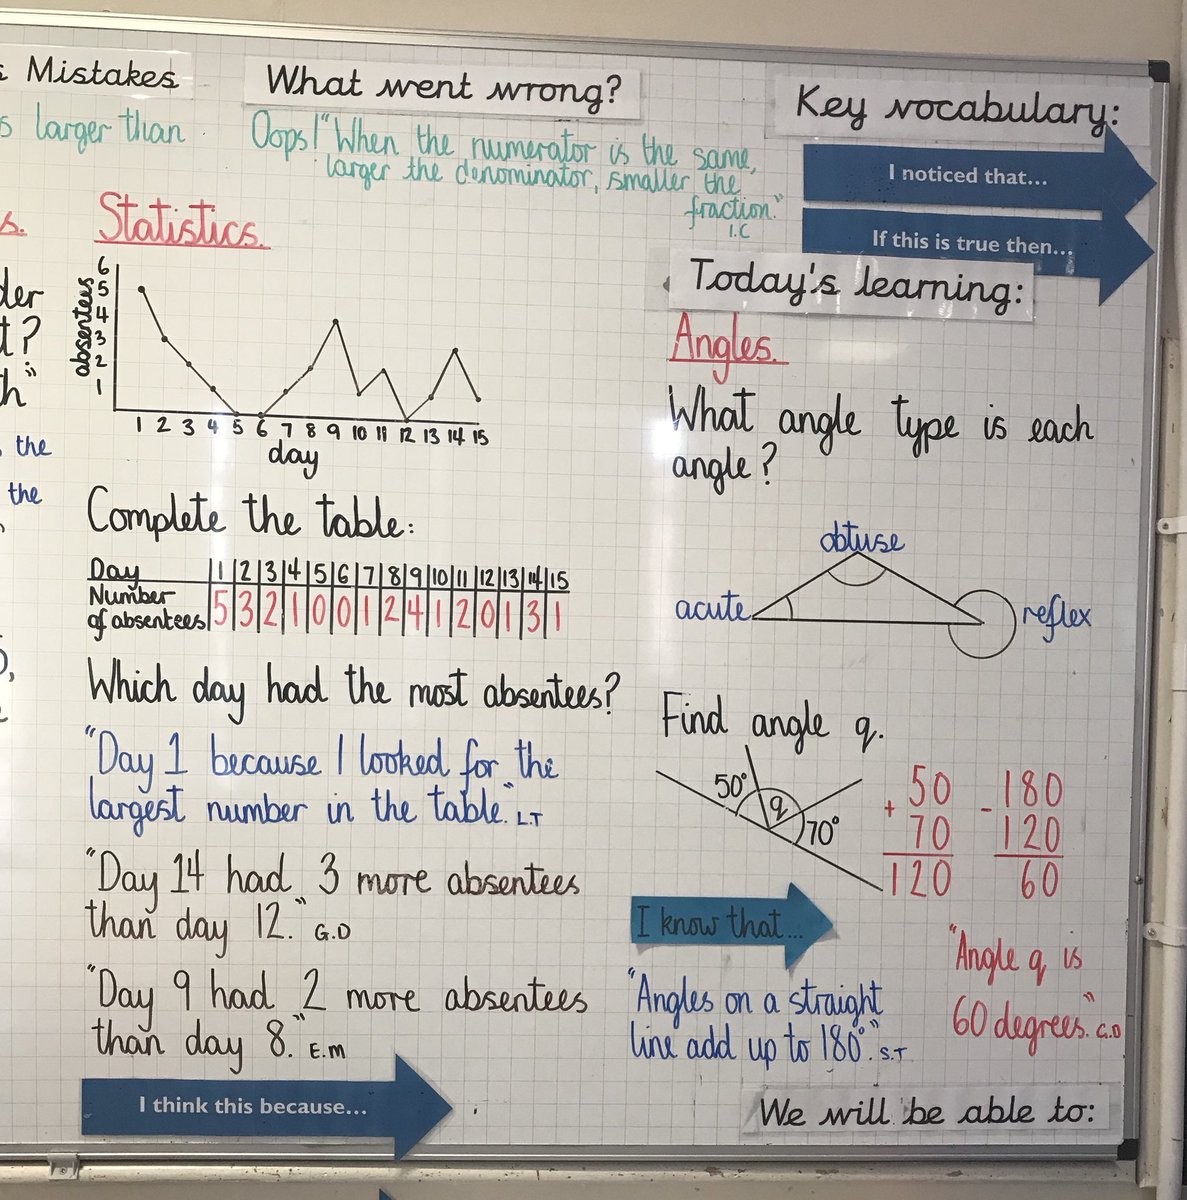 Mistakes
s larger than
s.
der
t?
h"
the
the
What went wrong?
Oops! "When the numerator is the same,
larger the denominator, smaller the
fraction."
I.C
Statistics.
absentees
6
5
4
3
2
1
1 2 3 4 5 6 7 8 9 10 11 12 13 14 15
day
Complete the table:
Day 1 2 3 4 5 6 7 8 9 10 11 12 13 14 15
Number
of absentees 5 3 2 1 0 0 1 2 4 1 2 0 1 3 1
Which day had the most absentees?
"Day 1 because I looked for the
largest number in the table." L.T
"Day 14 had 3 more absentees
than day 12." G.D
"Day 9 had 2 more absentees
than day 8." E.M
I think this because...
Key vocabulary:
I noticed that...
If this is true then...
Today's learning:
Angles.
What angle type is each
angle?
obtuse
acute
reflex
Find angle q.
50° q 70°
50
+ 70
120
- 180
120
60
I know that...
"Angles on a straight
line add up to 180°." S.T
"Angle q is
60 degrees." G.D
We will be able to: